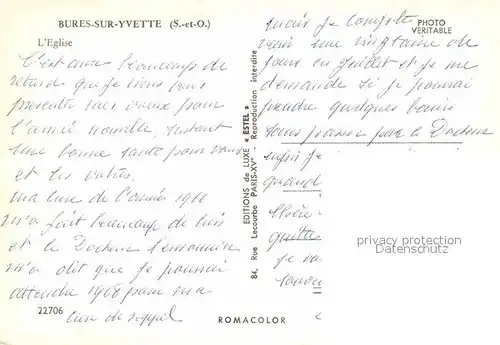 BURES-SUR-YVETTE (S.-et-O.)
L'Eglise
C'est avec beaucoup de
retard que je viens vous
présenter mes vœux pour
l'année nouvelle, surtout
une bonne santé pour vous
et les vôtres.
Ma cure de l'année 1966
m'a fait beaucoup de bien
et le Docteur
m'a dit que je pouvais
attendre 1968 pour ma
cure de rappel
22706
EDITIONS de LUXE « ESTEL »
84, Rue Lecourbe PARIS-XVe - Reproduction interdite
ROMACOLOR
PHOTO
VERITABLE
mais je compte
venir une vingtaine de
jours en Juillet et je me
demande si je pourrai
prendre quelques bains
sans passer par le Docteur
enfin je
quand
je
privacy protection
Datenschutz